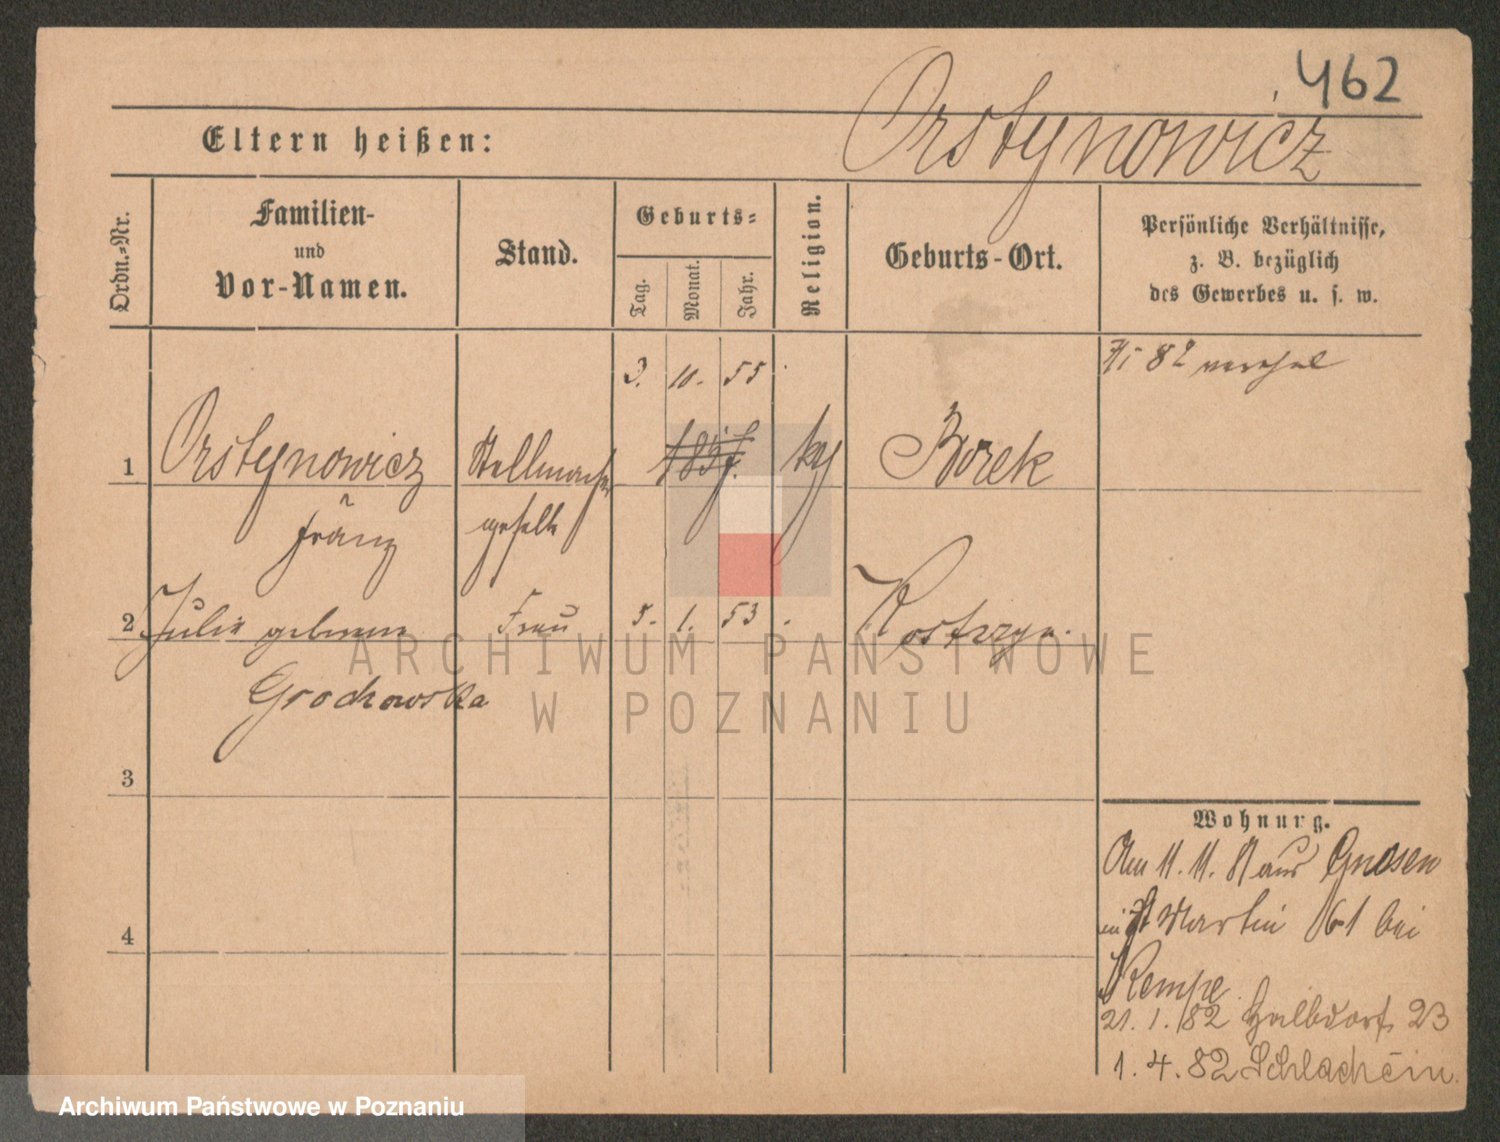 462
Orstynowicz
Eltern heißen:
Ordn.-Nr.
Familien-
und
Vor-Namen.
Stand.
Geburts-
Tag.
Monat.
Jahr.
Religion.
Geburts-Ort.
Persönliche Verhältnisse,
z. B. bezüglich
des Gewerbes u. s. w.
3. 10. 55
82
1 Orstynowicz Stellmacher 1857. Borek
Franz geselle
2 Julie geborene Frau 5. 1. 53 Kostrzyn.
Grochowska
3
4
Wohnung.
Am 11. 11. 81 aus Gnesen
St Martin 61 bei
Kempe
21. 1. 82 Halbdorf 23
1. 4. 82
ARCHIWUM PAŃSTWOWE
W POZNANIU
Archiwum Państwowe w Poznaniu